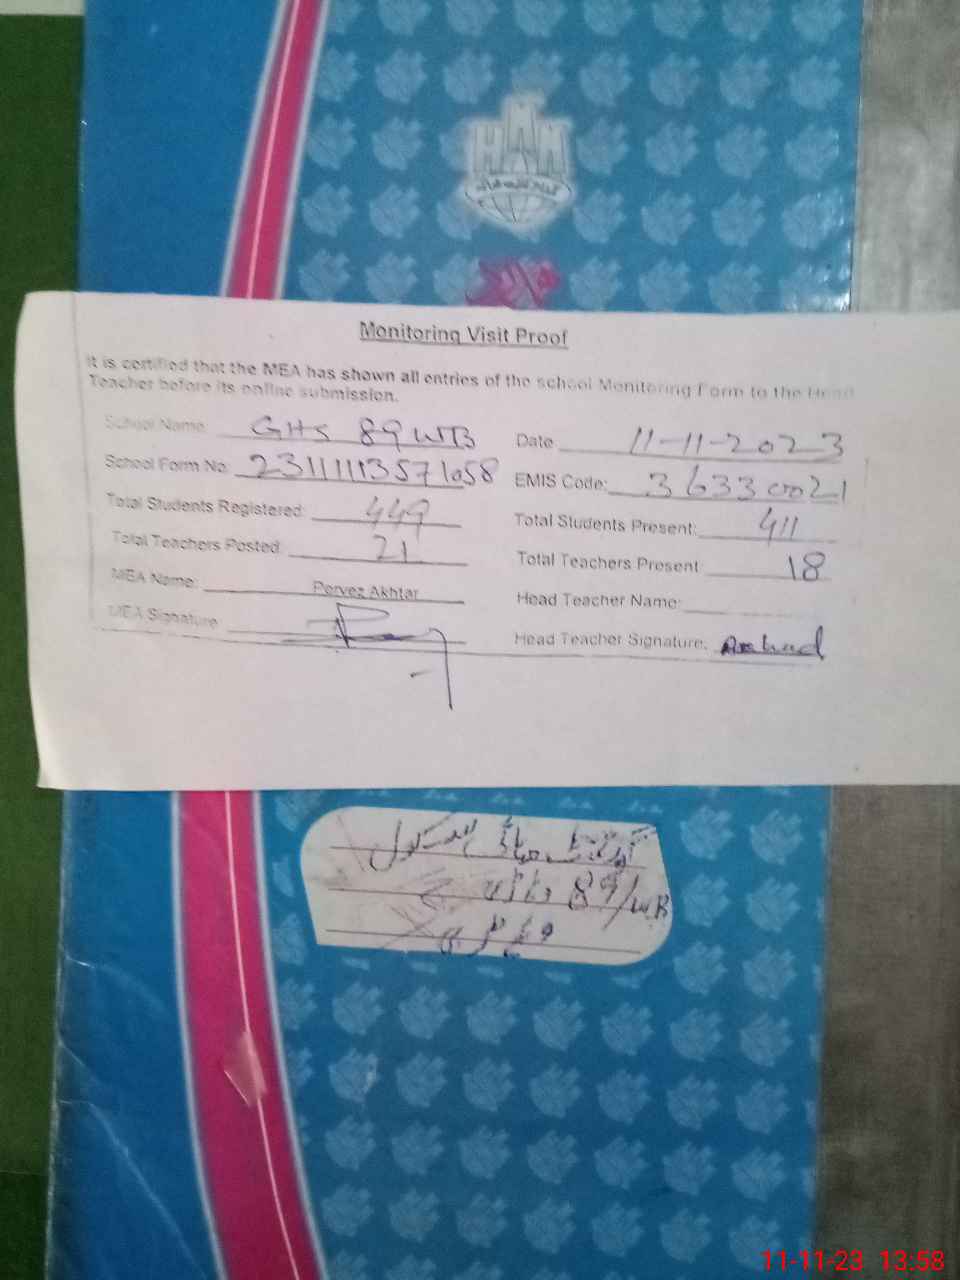 HAM
Monitoring Visit Proof
It is certified that the MEA has shown all entries of the school Monitoring Form to the Head
Teacher before its online submission.
School Name: GHS 89 WB Date 11-11-2023
School Form No: EMIS Code: 36330021
Total Students Registered: 449 Total Students Present: 411
Total Teachers Posted: 21 Total Teachers Present 18
MEA Name: Pervez Akhtar Head Teacher Name:
MEA Signature Head Teacher Signature: Arshad
گورنمنٹ ہائی سکول
89/WB وہاڑی
11-11-23 13:58